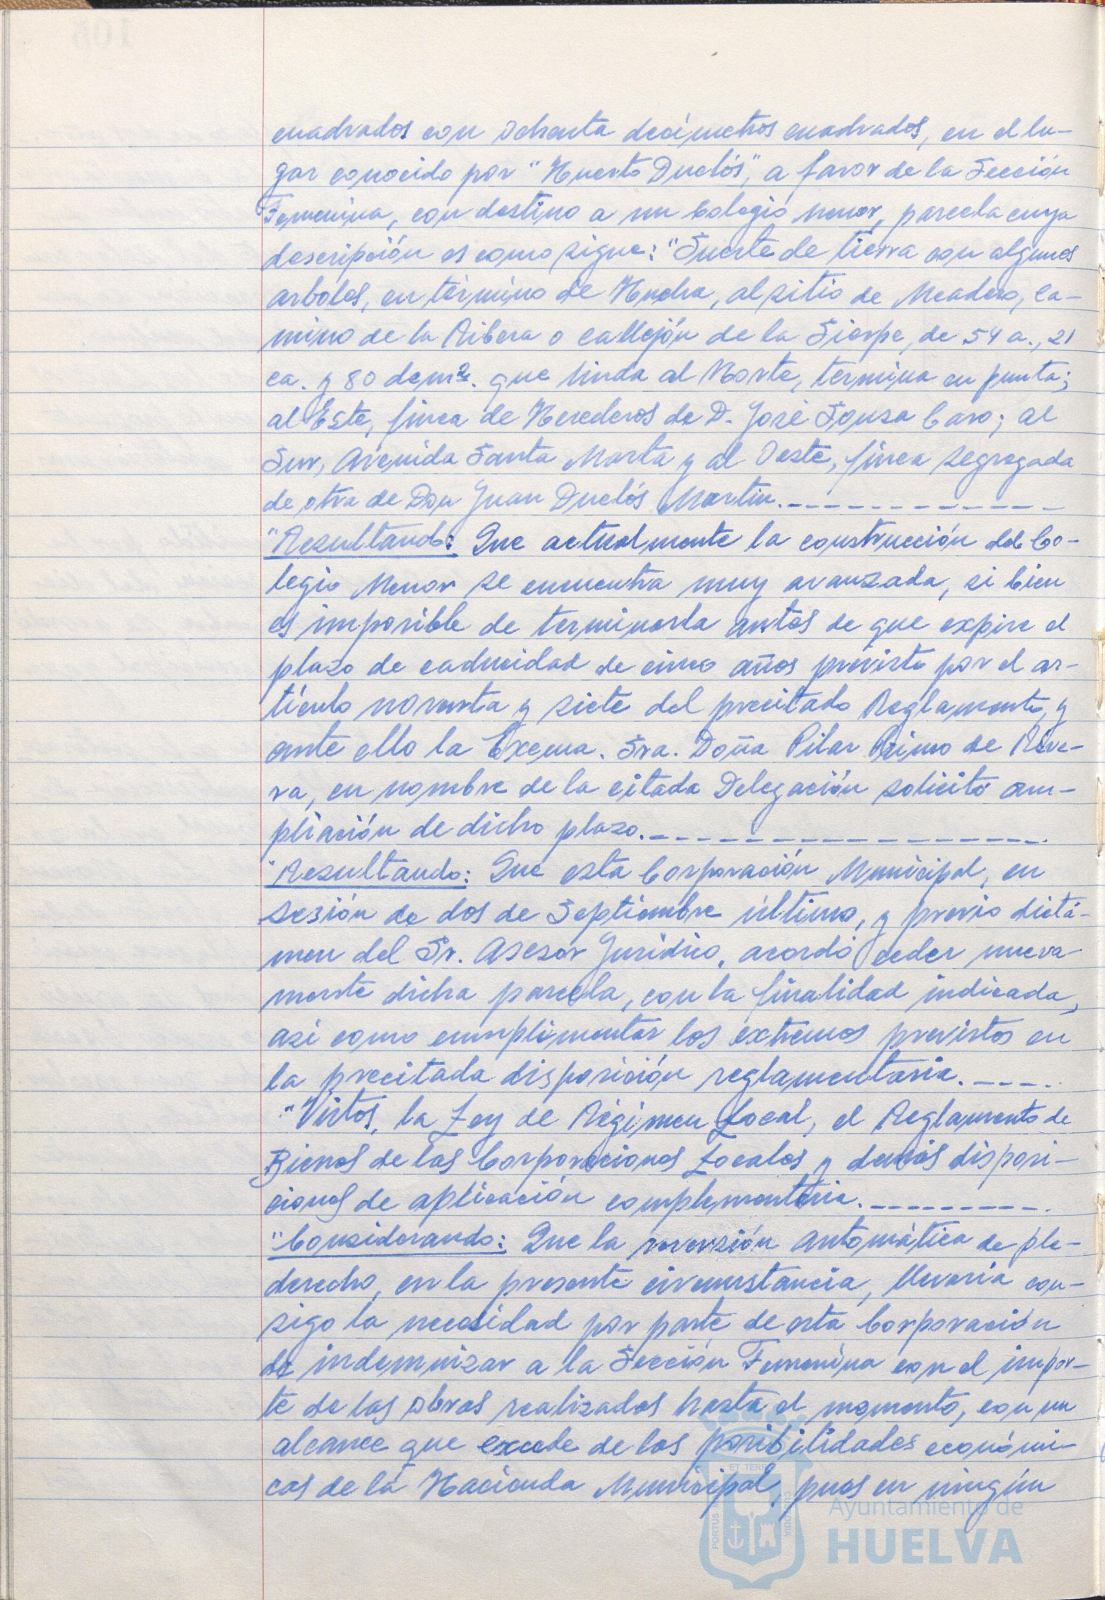 cuadrados con ochenta decímetros cuadrados, en el lu-
gar conocido por "Huerto Duclós", a favor de la Sección
Femenina, con destino a un Colegio Menor, parcela cuya
descripción es como sigue: "Suerte de tierra con algunos
arboles, en término de Huelva, al sitio de Meadero, ca-
mino de la Ribera o callejón de la Sierpe, de 54 a., 21
ca. y 80 dcm². que linda al Norte, termina en punta;
al Este, finca de Herederos de D. José Sousa Caro; al
Sur, Avenida Santa Marta y al Oeste, finca segregada
de otra de Don Juan Duclós Martin.
"Resultando: Que actualmente la construcción del Co-
legio Menor se encuentra muy avanzada, si bien
es imposible de terminarla antes de que expire el
plazo de caducidad de cinco años previsto por el ar-
tículo noventa y siete del precitado Reglamento, y
ante ello la Excma. Sra. Doña Pilar Primo de Rive-
ra, en nombre de la citada Delegación solicitó am-
pliación de dicho plazo.
"Resultando: Que esta Corporación Municipal, en
sesión de dos de Septiembre último, y previo dictá-
men del Sr. Asesor Jurídico, acordó ceder nueva-
mente dicha parcela, con la finalidad indicada,
así como cumplimentar los extremos previstos en
la precitada disposición reglamentaria.
"Vistos, la Ley de Régimen Local, el Reglamento de
Bienes de las Corporaciones Locales y demás disposi-
ciones de aplicación complementaria.
"Considerando: Que la reversión automática de ple-
derecho, en la presente circunstancia, llevaría con-
sigo la necesidad por parte de esta Corporación
de indemnizar a la Sección Femenina con el impor-
te de las obras realizadas hasta el momento, con un
alcance que excede de las posibilidades económi-
cas de la Hacienda Municipal, pues en ningún
Ayuntamiento de
HUELVA